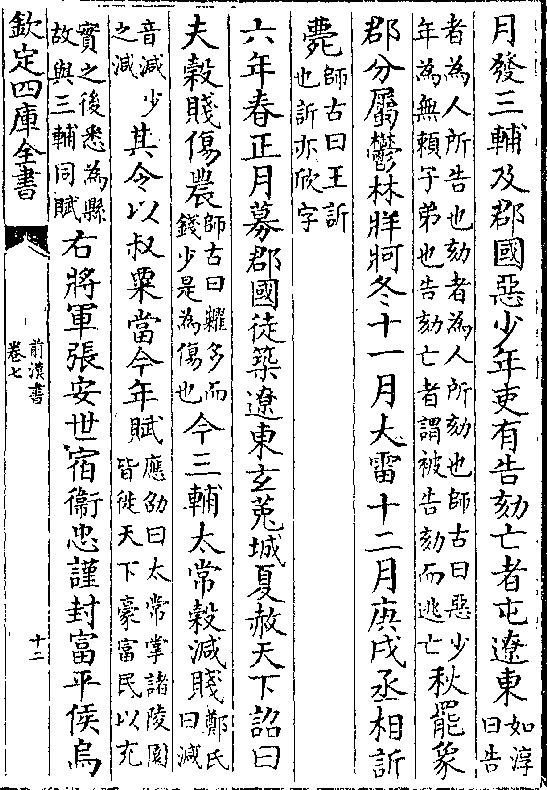 月發三輔及郡國惡少年吏有告劾亡者屯遼東如淳曰告
者為人所告也劾者為人所劾也師古曰惡少年為無賴子弟也告劾亡者謂被告劾而逃亡秋罷象
郡分屬鬱林牂牁冬十一月大雷十二月庚戌丞相訢
薨師古曰王訢也訢亦欣字
六年春正月募郡國徒築遼東玄菟城夏赦天下詔曰
夫穀賤傷農師古曰糶多而錢少是為傷也今三輔太常穀減賤鄭氏曰減
音減少之減其令以叔粟當今年賦應劭曰太常掌諸陵園皆徙天下豪富民以充
實之後悉為縣故與三輔同賦右將軍張安世宿衞忠謹封富平侯烏
欽定四庫全書
前漢書
卷七
十二